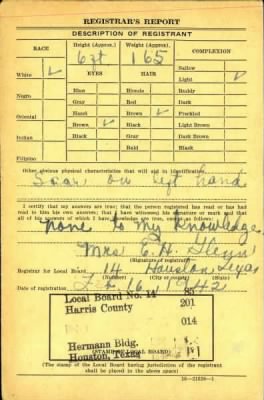 REGISTRAR'S REPORT
DESCRIPTION OF REGISTRANT
RACE
Height (Approx.)
Weight (Approx.)
COMPLEXION
6 ft
165
White ✓
EYES
HAIR
Sallow
Light ✓
Negro
Blue
Blonde
Ruddy
Gray
Red
Dark
Oriental
Hazel
Brown ✓
Freckled
Brown ✓
Black
Light Brown
Indian
Black
Gray
Dark Brown
Bald
Black
Filipino
Other obvious physical characteristics that will aid in identification
Scar on left hand
I certify that my answers are true; that the person registered has read or has had
read to him his own answers; that I have witnessed his signature or mark and that
all of his answers of which I have knowledge are true, except as follows:
none to my knowledge
Mrs C. H.
(Signature of registrar)
Registrar for Local Board 14 Houston Texas
(Number) (City or county) (State)
Date of registration 1942
Local Board No. 14 85
Harris County 201
014
Hermann Bldg.
Houston, Texas
(STAMP OF LOCAL BOARD)
(The stamp of the Local Board having jurisdiction of the registrant
shall be placed in the above space)
16—21630-1